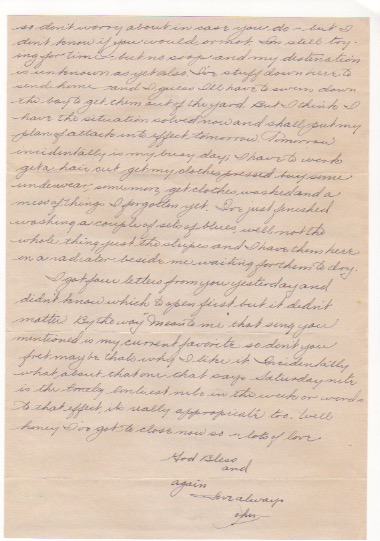 so don't worry about in case you do - but I
don't know if you would or not. I'm still try-
ing for time - but no soap and my destination
is unknown as yet also. I've stuff down here to
send home and I guess I'll have to swim down
the bay to get them out of the yard. But I think I
have the situation solved now and shall put my
plan of attack into effect tomorrow. Tomorrow
incidentally is my busy day, I have to work
get a hair cut get my clothes pressed buy some
underwear, some more, get clothes washed and a
mess of things I forgotten yet. I've just finished
washing a couple of sets of blues, well not the
whole thing just the stripes and I have them here
on a radiator beside me waiting for them to dry.
I got four letters from you yesterday and
didn't know which to open first but it didn't
matter. By the way that song you
mentioned is my current favorite so don't you
fret maybe thats why I like it. Incidentally
what about that one that says Saturday nite
is the lonely loneliest nite in the week or words
to that effect, its really appropriate too. Well
honey I've got to close now so - lots of love
God Bless
and
again
Love always